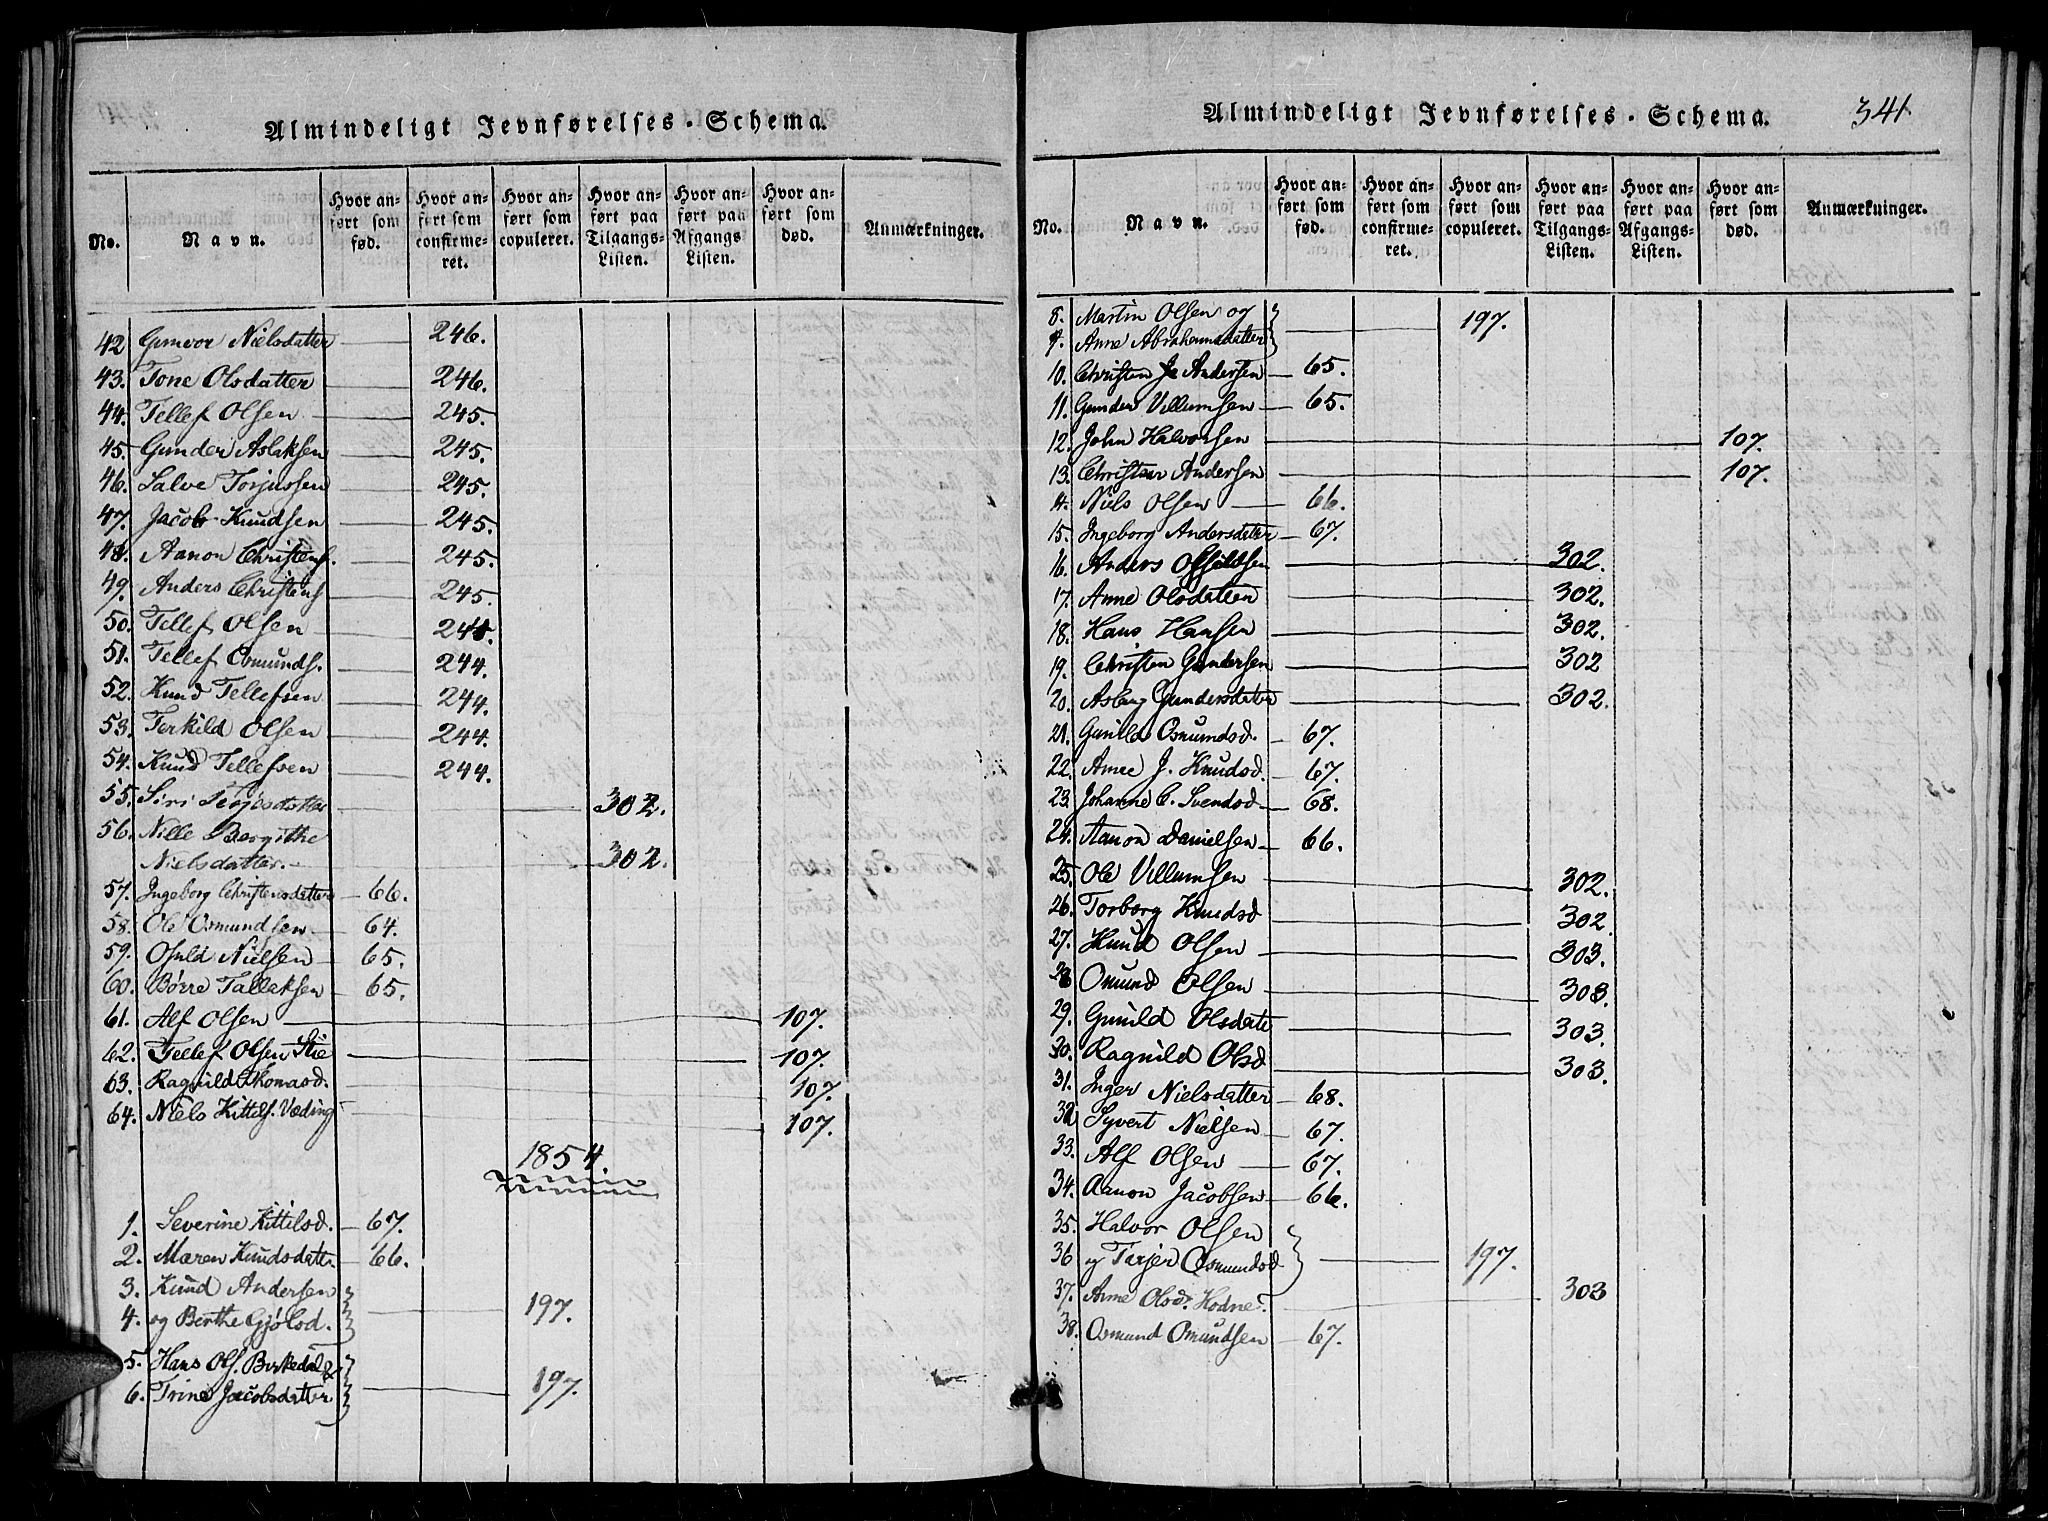 Almindeligt Jevnførelses-Schema.
No. Navn. Hvor anført som fød. Hvor anført som confirmeret. Hvor anført som copuleret. Hvor anført paa Tilgangs-Listen. Hvor anført paa Afgangs Listen. Hvor anført som død. Anmærkninger.
42 Gunvor Nielsdatter 246.
43. Tone Olsdatter 246.
44. Tellef Olsen 245.
45. Gunder Aslaksen 245.
46. Salve Torjussen 245.
47. Jacob Knudsen 245.
48. Aanon Christens. 245.
49. Anders Christens 245.
50. Tellef Olsen
51. Tellef Osmunds. 244.
52. Knud Tellefsen 244.
53. Terkild Olsen 244.
54. Knud Tellefsen 244.
55. Siri 302.
56. Nille Bergithe
Nielsdatter. 302.
57. Ingeborg Christensdatter 66.
58. Ole Osmundsen 64.
59. Osuld Nielsen 65.
60. Børre Tallaksen 65.
61. Alf Olsen 107.
62. Tellef Olsen 107.
63. Ragnild Thomasd. 107.
64. Niels Kittels. Væding 107.
1854.
1. Severine Kittilsd. 67.
2. Maren Knudsdatt. 66.
3. Knud Andersen
4. og Berthe Gjølsd. 197.
5. Hans Ols. Birkedal &
6. Trine Jacobsdatter 197.
Almindeligt Jevnførelses-Schema. 341.
No. Navn. Hvor anført som fød. Hvor anført som confirmeret. Hvor anført som copuleret. Hvor anført paa Tilgangs-Listen. Hvor anført paa Afgangs-Listen. Hvor anført som død. Anmærkninger.
8. Martin Olsen og 197.
9. Anne Abrahamsdatter
10. Christen Andersen 65.
11. Gunder Villumsen 65.
12. John Halvorsen 107.
13. Andersen 107.
14. Niels Olsen 66.
15. Ingeborg Andersdatter 67.
16. Anders 302.
17. Anne Olsdatter 302.
18. Hans Hansen 302.
19. Christen Gundersen 302
20. Asberg Gundersdatter 302.
21. Gunild Osmundsd. 67.
22. Anne J. Knudsd. 67.
23. Johanne C. Svendsd. 68.
24. Aanon Danielsen 66.
25. Ole Villumsen 302.
26. Torborg Knudsd 302.
27. Knud Olsen 303.
28 Omund Olsen 303.
29. Gunild Olsdatt 303.
30. Ragnild Olsd 303.
31. Inger Nielsdatter 68.
32 Syvert Nielsen 67.
33. Alf Olsen 67.
34. Aanon Jacobsen 66.
35. Halvor Olsen
36 og Tarjer Osmundsd 197.
37. Anne Olsd. Hodne. 303
38. Osmund Omundsen 67.